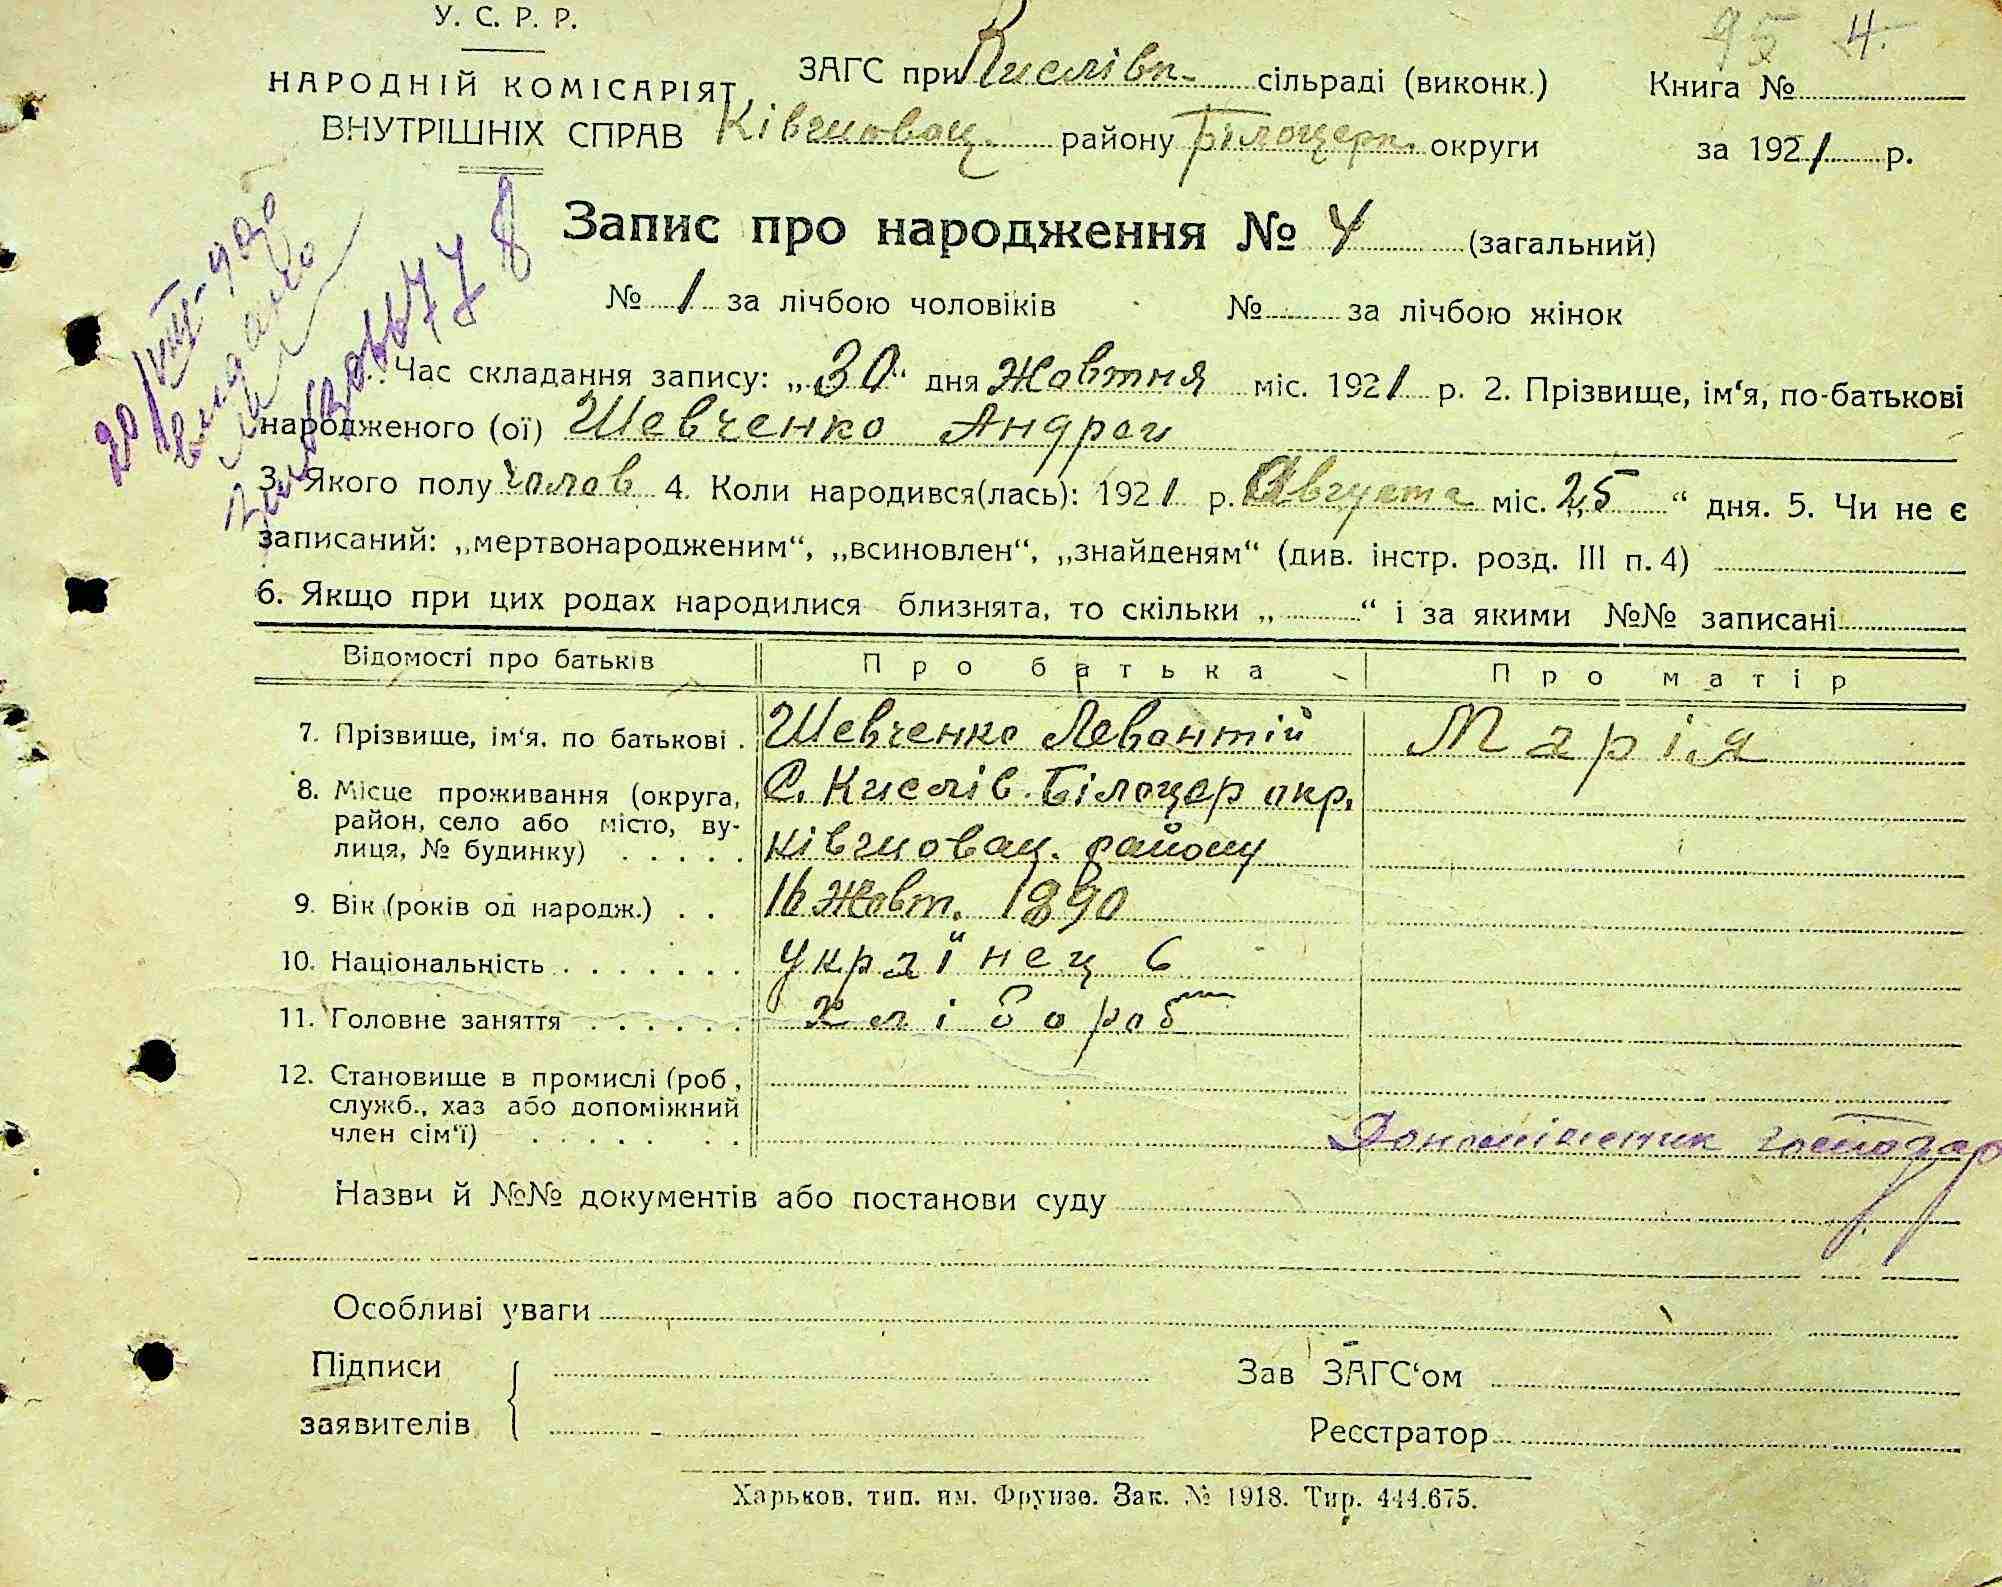 У. С. Р. Р.
НАРОДНІЙ КОМІСАРІЯТ
ВНУТРІШНІХ СПРАВ
95 4.
ЗАГС при Кислівк. сільраді (виконк.) Книга №
Ківшовац. району Білоцерк. округи за 1921 р.
Запис про народження № 4 (загальний)
№ 1 за лічбою чоловіків № за лічбою жінок
20/VIII-
видано
1. Час складання запису: „30“ дня Жовтня міс. 1921 р. 2. Прізвище, ім‘я, по-батькові
народженого (ої) Шевченко Андрей
3. Якого полу чолов 4. Коли народився(лась): 1921 р. Августа міс. „25“ дня. 5. Чи не є
записаний: „мертвонародженим“, „всиновлен“, „знайденям“ (див. інстр. розд. III п. 4)
6. Якщо при цих родах народилися близнята, то скільки „ “ і за якими №№ записані
Відомості про батьків Про батька Про матір
7. Прізвище, ім‘я, по батькові . Шевченко Левонтій Марія
8. Місце проживання (округа, С. Кислів. Білоцер окр.
район, село або місто, ву-
лиця, № будинку) . . . . . Ківшовац. району
9. Вік (років од народж.) . . 16 Жовт. 1890
10. Національність . . . . . . . Українец 6
11. Головне заняття . . . . . . Хлібороб
12. Становище в промислі (роб.,
служб., хаз або допоміжний
член сім‘ї) . . . . . . . Допоміжник господар
Назви й №№ документів або постанови суду
Особливі уваги
Підписи Зав ЗАГС‘ом
заявителів Реєстратор
Харьков, тип. им. Фрунзе. Зак. № 1918. Тир. 444.675.